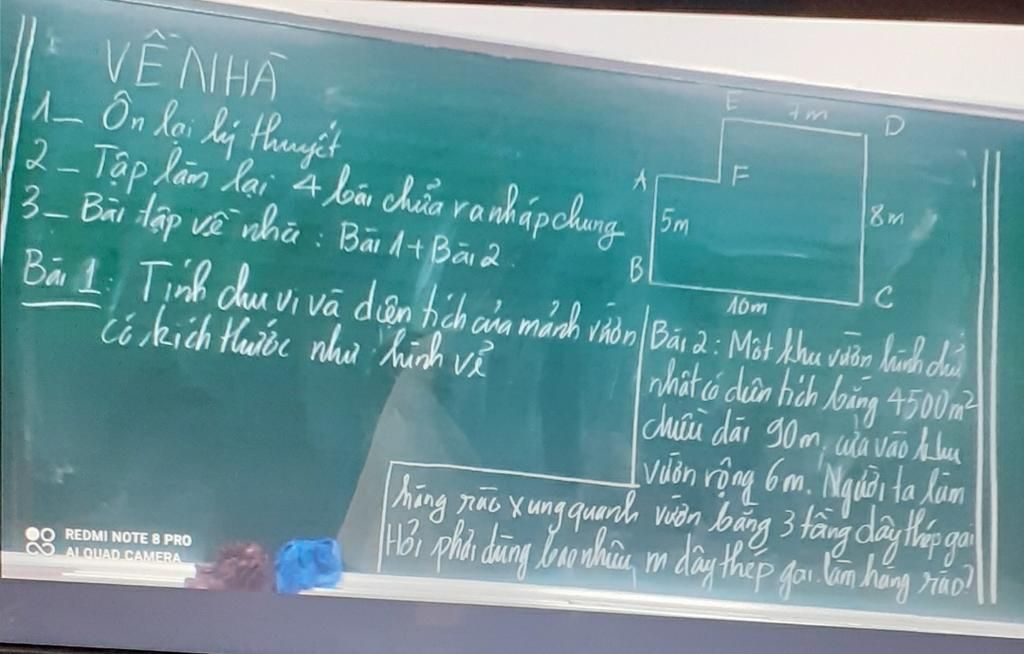 VỀ NHÀ
1- Ôn lại lý thuyết
2- Tập làm lại 4 bài chữa ra nháp chung
3- Bài tập về nhà: Bài 1 + Bài 2
Bài 1: Tính chu vi và diện tích của mảnh vườn
có kích thước như hình vẽ
E 7m D
A F
5m 8m
B C
10m
Bài 2: Một khu vườn hình chữ
nhật có diện tích bằng 4500m²
chiều dài 90m, cửa vào khu
vườn rộng 6m. Người ta làm
hàng rào xung quanh vườn bằng 3 tầng dây thép gai
Hỏi phải dùng bao nhiêu m dây thép gai làm hàng rào?
REDMI NOTE 8 PRO
AI QUAD CAMERA